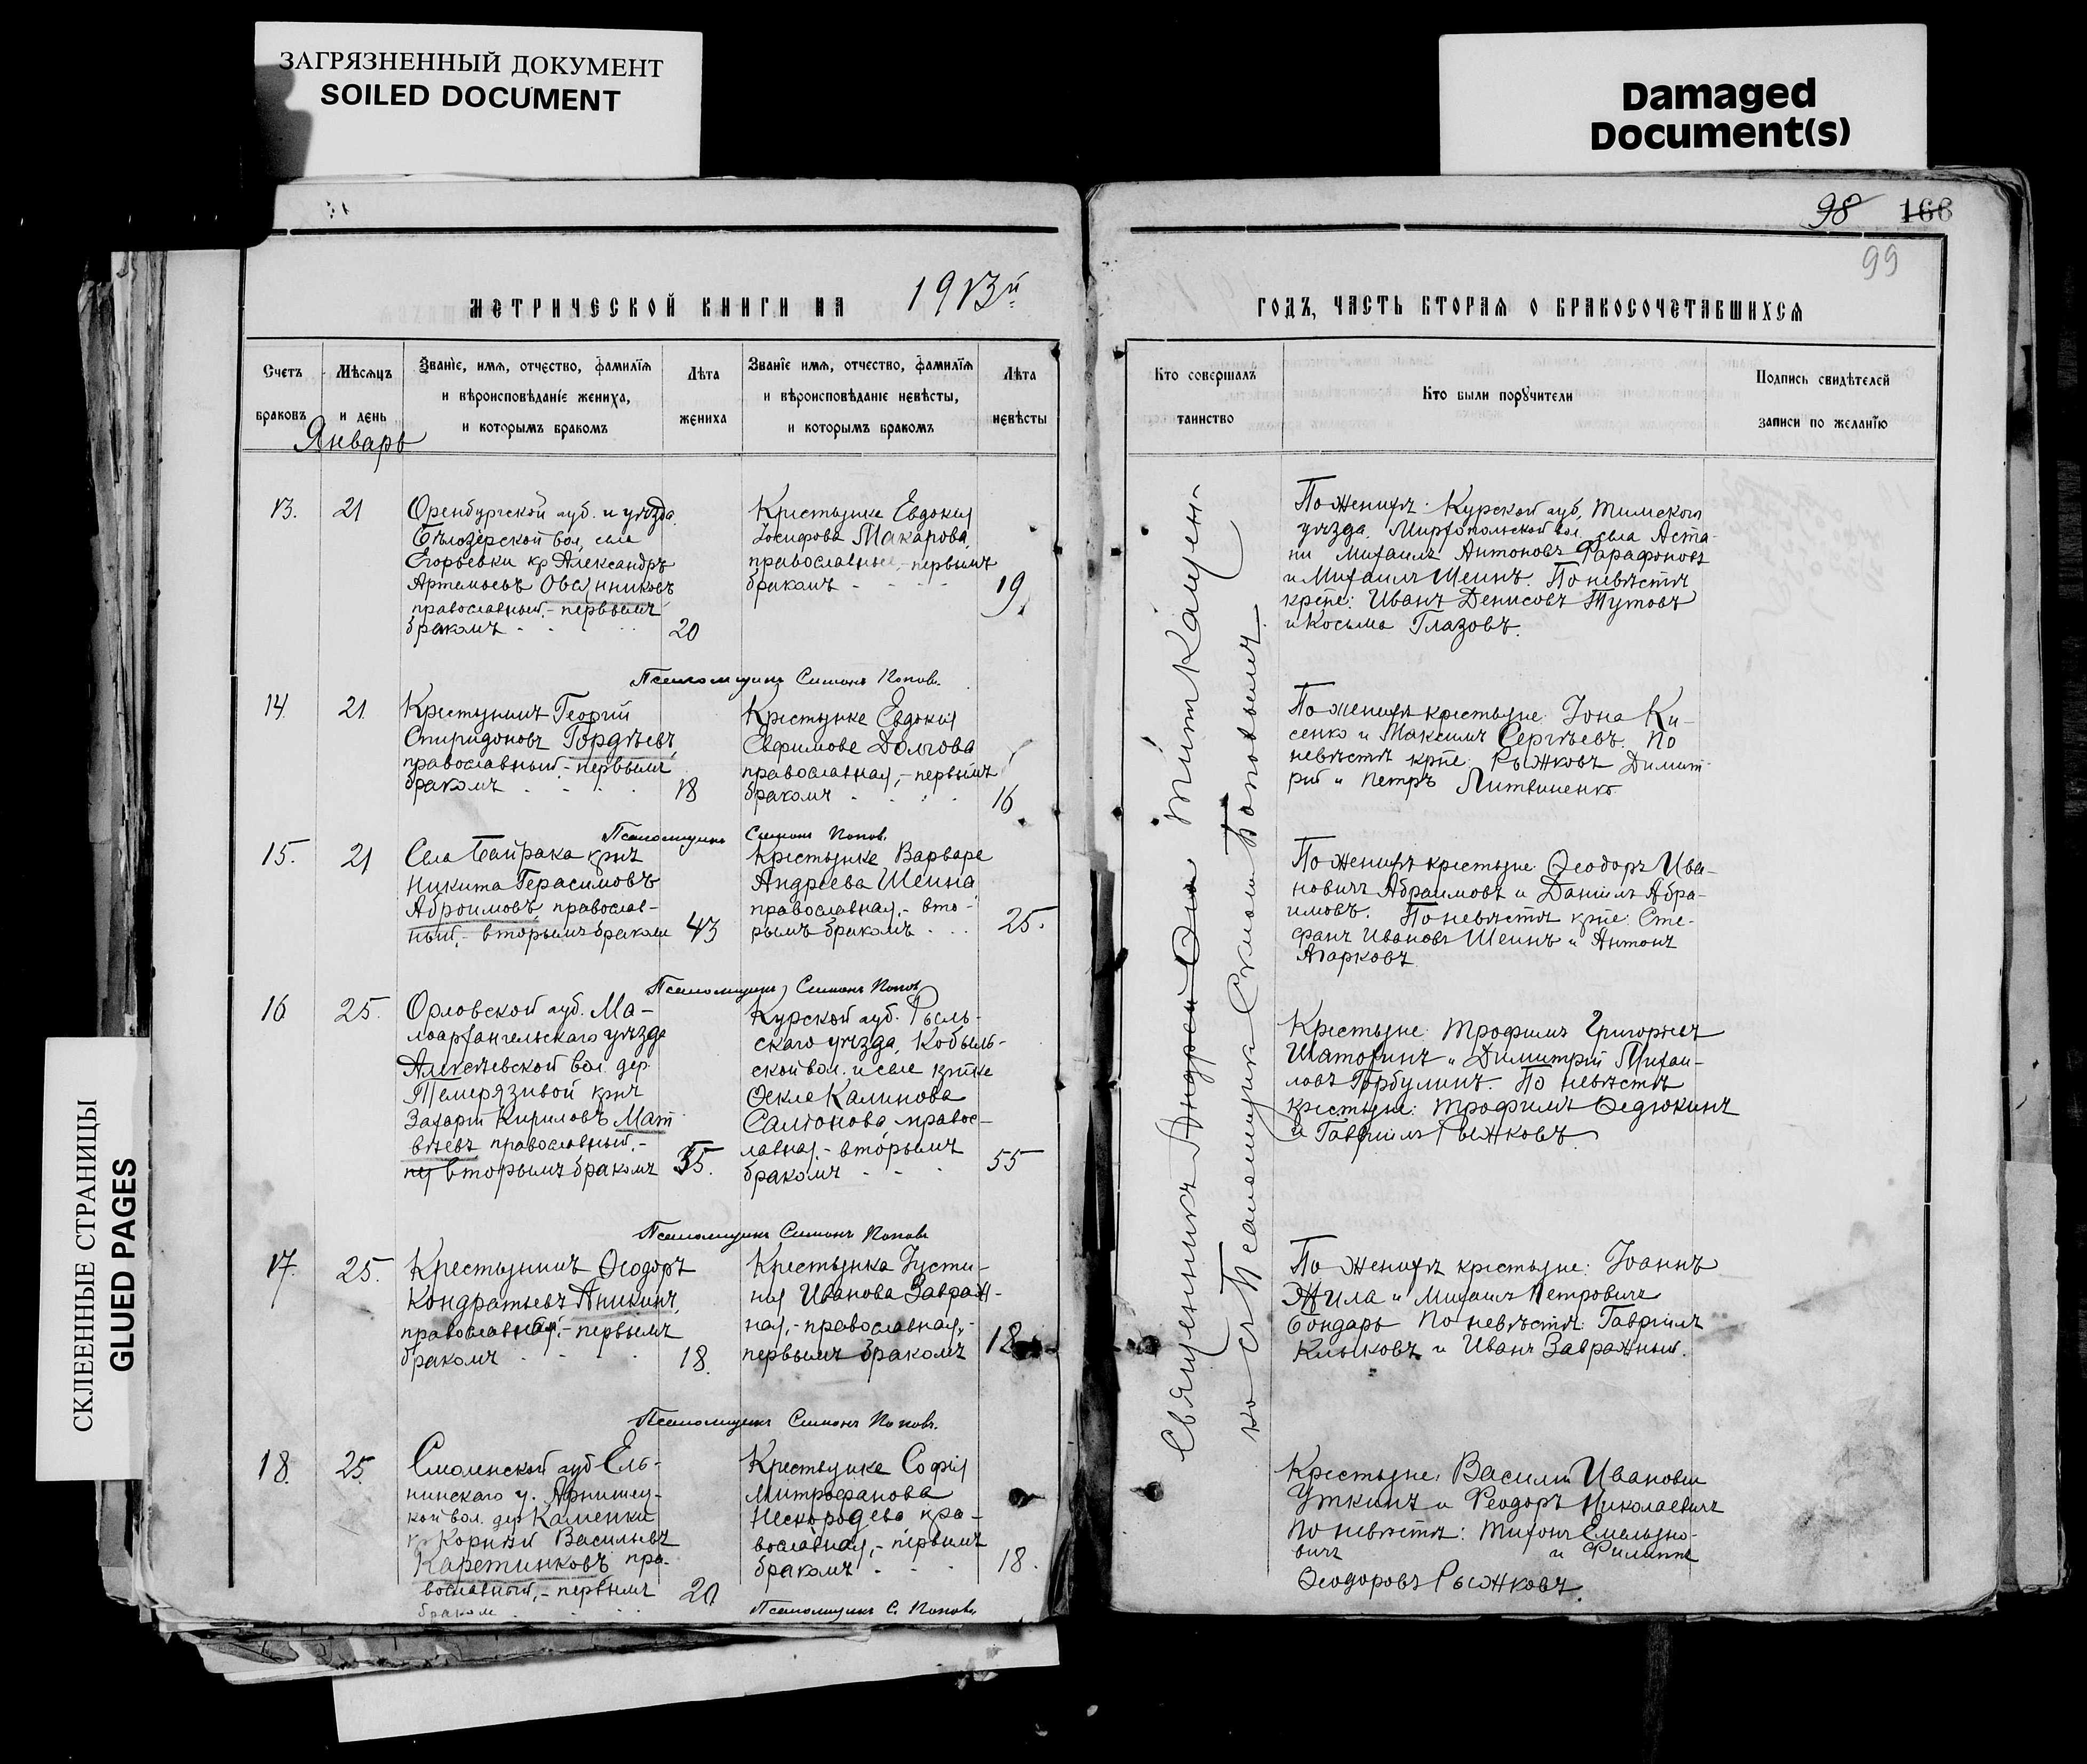 ЗАГРЯЗНЕННЫЙ ДОКУМЕНТ
SOILED DOCUMENT
Damaged
Document(s)
СКЛЕЕННЫЕ СТРАНИЦЫ
GLUED PAGES
98 166
99
МЕТРИЧЕСКОЙ КНИГИ НА 1913й
ГОДЪ, ЧАСТЬ ВТОРАЯ О БРАКОСОЧЕТАВШИХСЯ
Счетъ браковъ
Мѣсяцъ и день
Званіе, имя, отчество, фамилія
и вѣроисповѣданіе жениха,
и которымъ бракомъ
Лѣта жениха
Званіе имя, отчество, фамилія
и вѣроисповѣданіе невѣсты,
и которымъ бракомъ
Лѣта невѣсты
Кто совершалъ таинство
Кто были поручители
Подпись свидѣтелей
записи по желанію
Январь
13. 21
Оренбургской губ. и уѣзда
Бѣлозерской вол, села
Егорьевки кр Александръ
Артемьевъ Овсянниковъ
православный.- первымъ
бракомъ
20
Крестьянка Евдокія
Іосифова Макарова
православная,- первымъ
бракомъ
19.
По женихѣ: Курской губ, Тимского
уѣзда,
Михаилъ Антоновъ Фарафоновъ
и Михаилъ Шеинъ. По невѣстѣ
крне: Иванъ Денисовъ Тутовъ
и Косьма Глазовъ.
Псаломщикъ Симонъ Поповъ.
14. 21.
Крестьянинъ Георгій
Спиридоновъ Гордѣевъ,
православный.- первымъ
бракомъ
18
Крестьянка Евдокія
Евфимова Долгова
православная,- первымъ
бракомъ
16
По женихѣ крестьяне: Іона Ки-
сенко и Максимъ Сергѣевъ. По
невѣстѣ крне: Рыжковъ Димит-
рій и Петръ Литвиненко.
Псаломщикъ Симонъ Попов.
15. 21
Села Байрака крнъ
Никита Герасимовъ
Аброимовъ, православ-
ный,- вторымъ бракомъ
43
Крестьянка Варвара
Андреева Шеина
православная,- вто-
рымъ бракомъ
25.
По женихѣ крестьяне: Ѳеодоръ Ива-
новичъ Абраимовъ и Даніилъ Абра-
имовъ. По невѣстѣ крне: Сте-
фанъ Ивановъ Шеинъ и Антонъ
Агарковъ.
Псаломщикъ Симонъ Поповъ
16 25.
Орловской губ. Ма-
лоархангельскаго уѣзда
Алексѣевской вол. дер.
Темерязивой крнъ
Захарій Кириловъ Мат
вѣевъ православный.-
вторымъ бракомъ
55.
Курской губ. Рыль-
скаго уѣзда, Кобыль-
ской вол. и села кртка
Ѳекла Калинова
Салтонова правос-
лавная.- вторымъ
бракомъ
55
Крестьяне: Трофимъ Григорьевъ
Шатохинъ и Димитрій Михаи-
ловъ Горбулинъ. По невѣстѣ
крестьяне: Трофимъ Ѳедюкинъ
и Гавріилъ Рыжковъ
Псаломщикъ Симонъ Поповъ
17. 25.
Крестьянинъ Ѳеодоръ
Кондратьевъ Аникинъ,
православный,- первымъ
бракомъ
18.
Крестьянка Іусти-
на Иванова Завраж-
ная,- православная,-
первымъ бракомъ
18
По женихѣ крестьяне: Іоаннъ
Жила и Михаилъ Петровичъ
Бондарь По невѣстѣ: Гавріилъ
Клыковъ и Иванъ Завражный.
Псаломщикъ Симонъ Поповъ.
18. 25.
Смоленской губ Ель-
нинскаго у.
кой вол. дер Каменки
кр Корнилій Васильевъ
Каретниковъ пра-
вославный,- первымъ
бракомъ
20.
Крестьянка Софія
Митрофанова
Нескородева пра-
вославная,- первымъ
бракомъ
18.
Крестьяне: Василій Ивановъ
Уткинъ и Ѳеодоръ Николаевичъ
По невѣстѣ: Тихонъ Емельяно-
вичъ и Филиппъ
Ѳеодоровъ Рыжковъ.
Псаломщикъ С. Поповъ
Священникъ Андрей
ко съ Псаломщикомъ Симономъ Поповымъ.